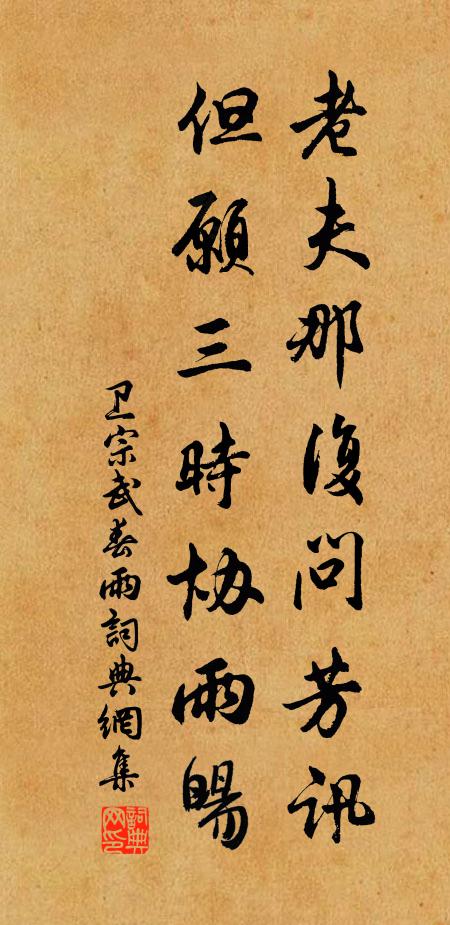 老夫那復問芳訊
但願三時協雨暘
卫宗武春雨詞典網集
詞典網印